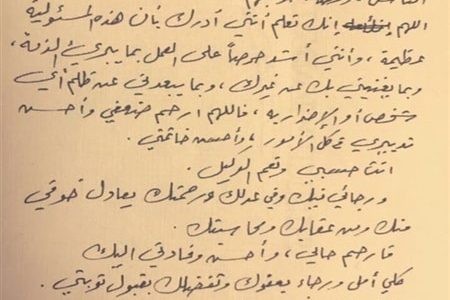 اللهم إنك تعلم أنني أدرك بأن هذه المسئولية
عظيمة، وأنني أشد حرصاً على العمل بما يبرئ الذمة،
وبما يغنيني بك عن غيرك، وبما يبعدني عن ظلم أي
شخص أو الإضرار به، فاللهم ارحم ضعفي وأحسن
تدبيري في كل الأمور، وأحسن خاتمتي.
أنت حسبي ونعم الوكيل.
ورجائي فيك وفي عدلك ورحمتك يعادل خوفي
منك ومن عقابك ومحاسبتك.
فارحم حالي، وأحسن وفادتي إليك
كلي أمل ورجاء بعفوك وتفضلك بقبول توبتي.